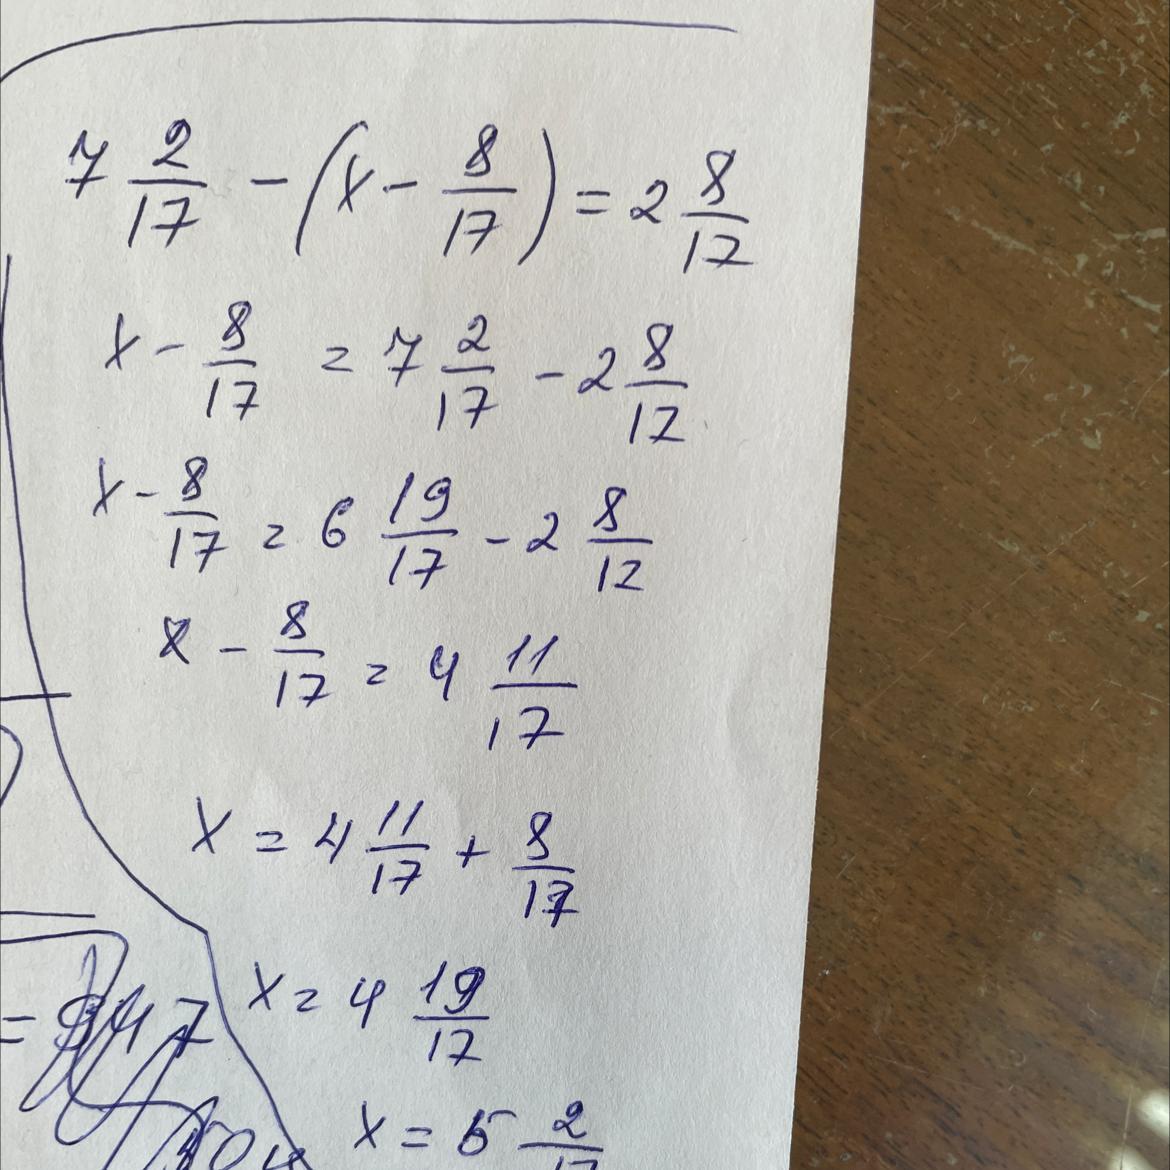 7 2/17 - (x - 8/17) = 2 8/17
x - 8/17 = 7 2/17 - 2 8/17
x - 8/17 = 6 19/17 - 2 8/17
x - 8/17 = 4 11/17
x = 4 11/17 + 8/17
x = 4 19/17
x = 5 2/17